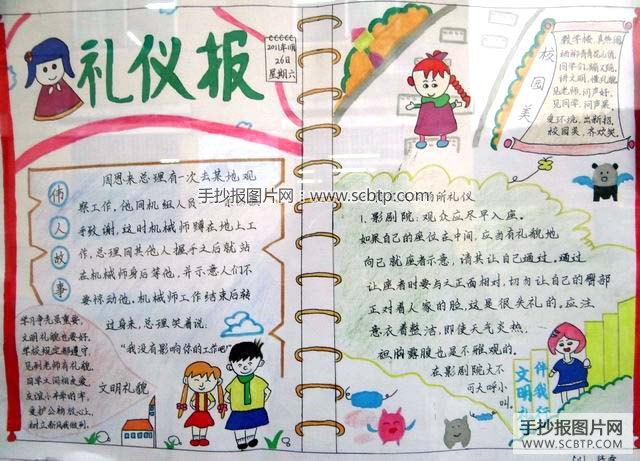 礼仪报
2011年1月
26日
星期六
伟人故事
周恩来总理有一次去某地观
察工作,他同机组人员
手致谢,这时机械师蹲在地上工
作,总理同其他人握手之后就站
在机械师身后等他,并示意人们不
要惊动他,机械师工作结束后转
过身来,总理笑着说:
“我没有影响你的工作吧!”
学习争先虽重要,
文明礼貌也要好。
学校规定都遵守,
见到老师有礼貌。
同学之间相友爱,
友谊小手牵的牢。
爱护公物放心上,
树立新风我做到。
文明礼貌
校园美
教学楼,真热闹
同学们,
讲文明,懂礼貌
见老师,问声好,
见同学,问声早。
爱环境,出新招,
校园美,齐欢笑。
手抄报图片网:www.scbtp.com
所礼仪
1.影剧院:观众应尽早入座。
如果自己的座位在中间,应当有礼貌地
向已就座者示意,请其让自己通过。通过
让座者时要与之正面相对,切勿让自己的臀部
正对着人家的脸,这是很失礼的。应注
意衣着整洁,即使天气炎热,
袒胸露腹也是不雅观的。
在影剧院大不
可大呼小
叫。
文明礼
伴我行
手抄报图片网
WWW.SCBTP.COM